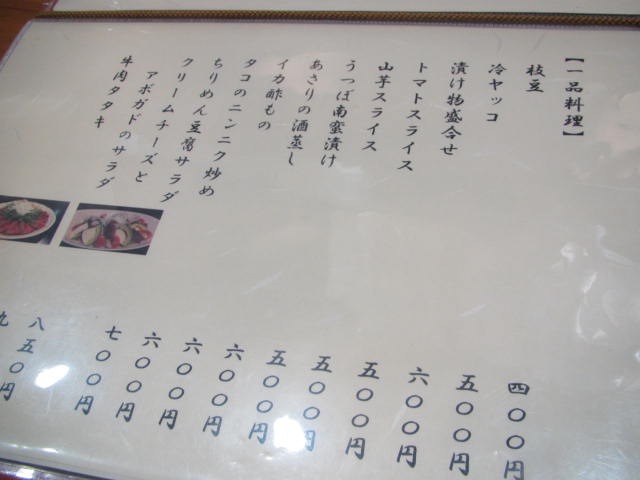 【一品料理】
枝豆 四〇〇円
冷ヤッコ 五〇〇円
漬け物盛合せ 六〇〇円
トマトスライス 五〇〇円
山芋スライス 五〇〇円
うつぼ南蛮漬け 五〇〇円
あさりの酒蒸し 六〇〇円
イカ酢もの 六〇〇円
タコのニンニク炒め 六〇〇円
ちりめん豆腐サラダ 七〇〇円
クリームチーズと
アボガドのサラダ 八五〇円
牛肉タタキ